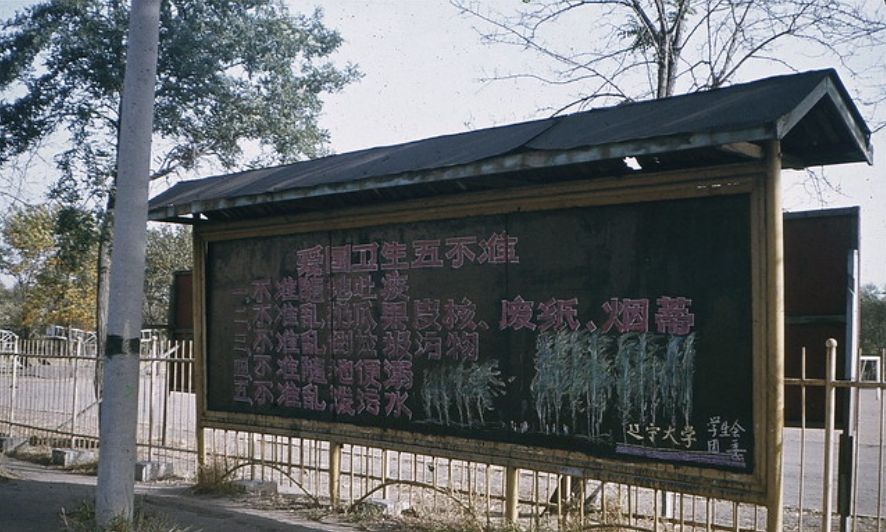 爱国卫生五不准
一.不准随地吐痰
二.不准乱扔瓜果皮核、废纸、烟蒂
三.不准乱倒垃圾污物
四.不准随地便溺
五.不准乱泼污水
辽宁大学 学生会
团委